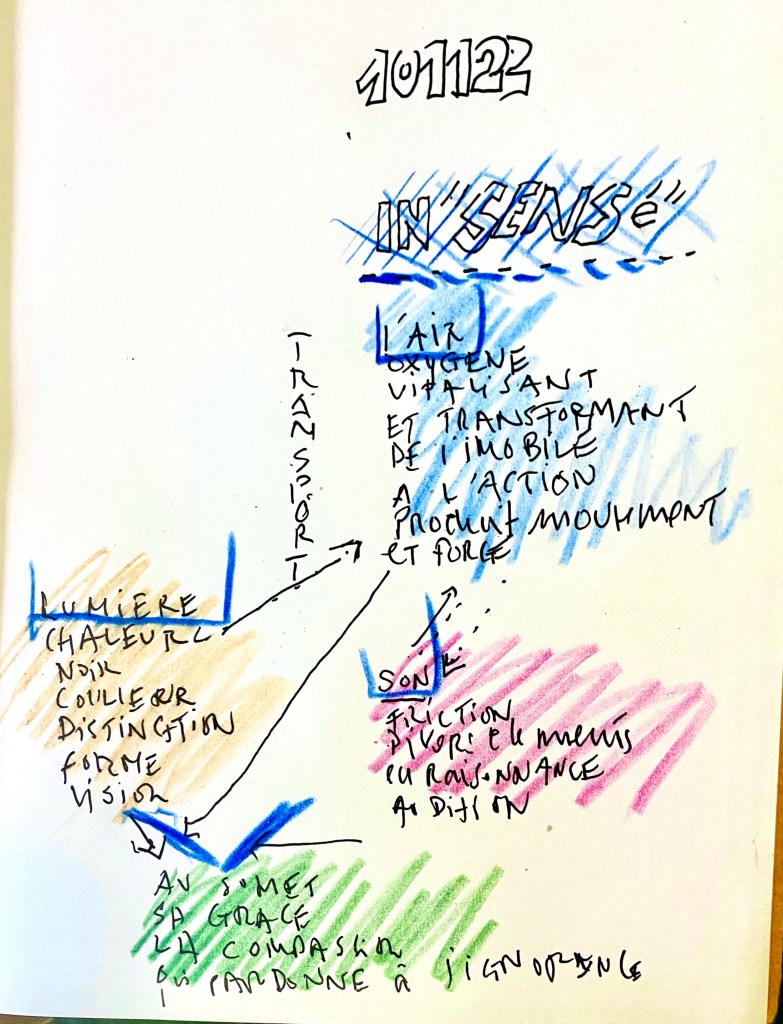 101123
IN "SENSé"
L'AIR
OXYGENE
VITALISANT
ET TRANSFORMANT
DE l'iMOBILE
A L'ACTION
PRODUIT MOUVMENT
ET FORCE
TRANSPORT
LUMIERE
CHALEUR
NOIR
COULEUR
DISTINCTION
FORME
VISION
SON
FRICTION
RAISONNANCE
AUDITION
AU SOMET
SA GRACE
LA COMPASSION
qui PARDONNE à l'IGNORANCE